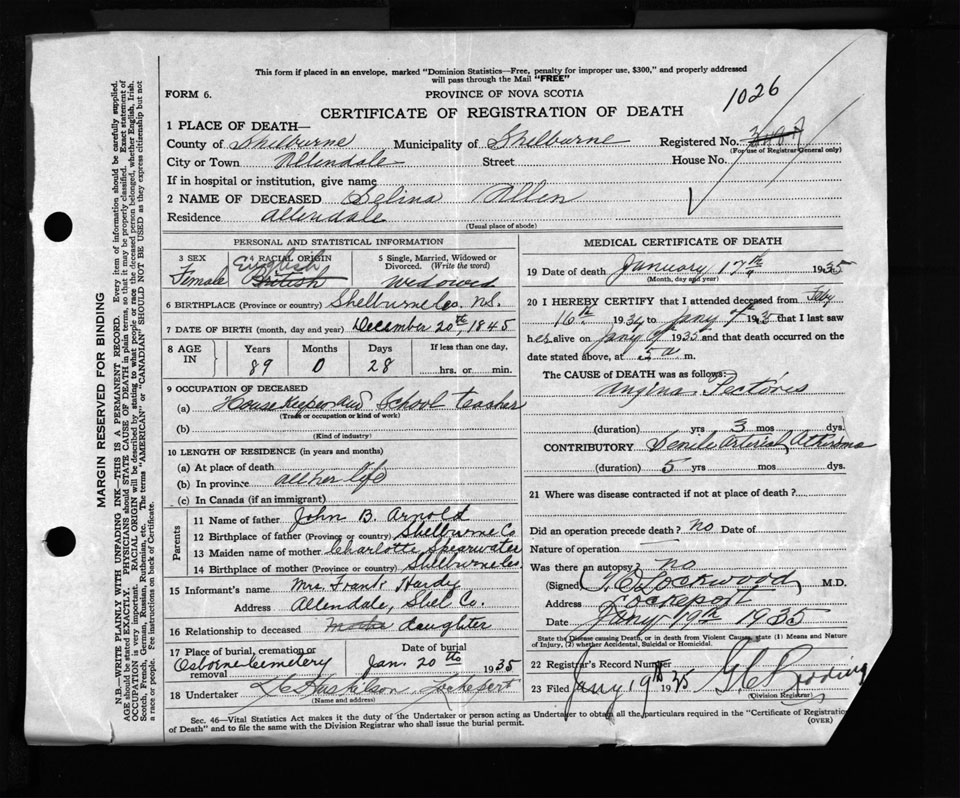 This form if placed in an envelope, marked "Dominion Statistics—Free, penalty for improper use, $300," and properly addressed
will pass through the Mail "FREE"
FORM 6.
PROVINCE OF NOVA SCOTIA
1026
CERTIFICATE OF REGISTRATION OF DEATH
1 PLACE OF DEATH—
County of Shelburne Municipality of Shelburne Registered No.
(For use of Registrar General only)
City or Town Allendale Street House No.
If in hospital or institution, give name
2 NAME OF DECEASED Selina Allen
Residence Allendale
(Usual place of abode)
PERSONAL AND STATISTICAL INFORMATION
3 SEX 4 RACIAL ORIGIN 5 Single, Married, Widowed or
Divorced. (Write the word)
English
Female British Widowed
6 BIRTHPLACE (Province or country) Shelburne Co. N.S.
7 DATE OF BIRTH (month, day and year) December 20th, 1845
8 AGE IN Years Months Days If less than one day,
89 0 28 hrs. or min.
9 OCCUPATION OF DECEASED
(a) House keeper and School teacher
(Trade or occupation or kind of work)
(b)
(Kind of industry)
10 LENGTH OF RESIDENCE (in years and months)
(a) At place of death
(b) In province all her life
(c) In Canada (if an immigrant)
Parents
11 Name of father John B. Arnold
12 Birthplace of father (Province or country) Shelburne Co
13 Maiden name of mother Charlotte Spearwater
14 Birthplace of mother (Province or country) Shelburne Co.
15 Informant's name Mrs Frank Hardy
Address Allendale, Shel Co.
16 Relationship to deceased daughter
17 Place of burial, cremation or removal Date of burial
Osborne Cemetery Jan. 20th 1935
18 Undertaker Lockeport
(Name and address)
MEDICAL CERTIFICATE OF DEATH
19 Date of death January 17th 1935
(Month, day and year)
20 I HEREBY CERTIFY that I attended deceased from Feby
16th 1934 to Jany 9 1935 that I last saw
her alive on Jany 9 1935 and that death occurred on the
date stated above, at 5 a m.
The CAUSE OF DEATH was as follows:
Angina Pectoris
(duration) yrs 3 mos dys.
CONTRIBUTORY Senile Arterial Atheroma
(duration) 5 yrs mos dys.
21 Where was disease contracted if not at place of death?
Did an operation precede death? No Date of
Nature of operation
Was there an autopsy? no
(Signed) Lockwood, M.D.
Address Lockeport
Date Jany 19th 1935
State the Disease causing Death, or in death from Violent Causes, state (1) Means and Nature
of Injury, (2) whether Accidental, Suicidal or Homicidal.
22 Registrar's Record Number
23 Filed Jany 19th 1935
(Division Registrar)
Sec. 46—Vital Statistics Act makes it the duty of the Undertaker or person acting as Undertaker to obtain all the particulars required in the "Certificate of Registration
of Death" and to file the same with the Division Registrar who shall issue the burial permit.
(OVER)
MARGIN RESERVED FOR BINDING
N.B.—WRITE PLAINLY WITH UNFADING INK—THIS IS A PERMANENT RECORD. Every item of information should be carefully supplied.
AGE should be stated EXACTLY. PHYSICIANS should STATE CAUSE OF DEATH in plain terms, so that it may be properly classified. Exact statement of
OCCUPATION is very important. RACIAL ORIGIN will be described by stating to what people or race the deceased person belonged, whether English, Irish,
Scotch, French, German, Russian, Ruthenian, etc. The terms "AMERICAN" or "CANADIAN" SHOULD NOT BE USED as they express citizenship but not
a race or people. See instructions on back of Certificate.